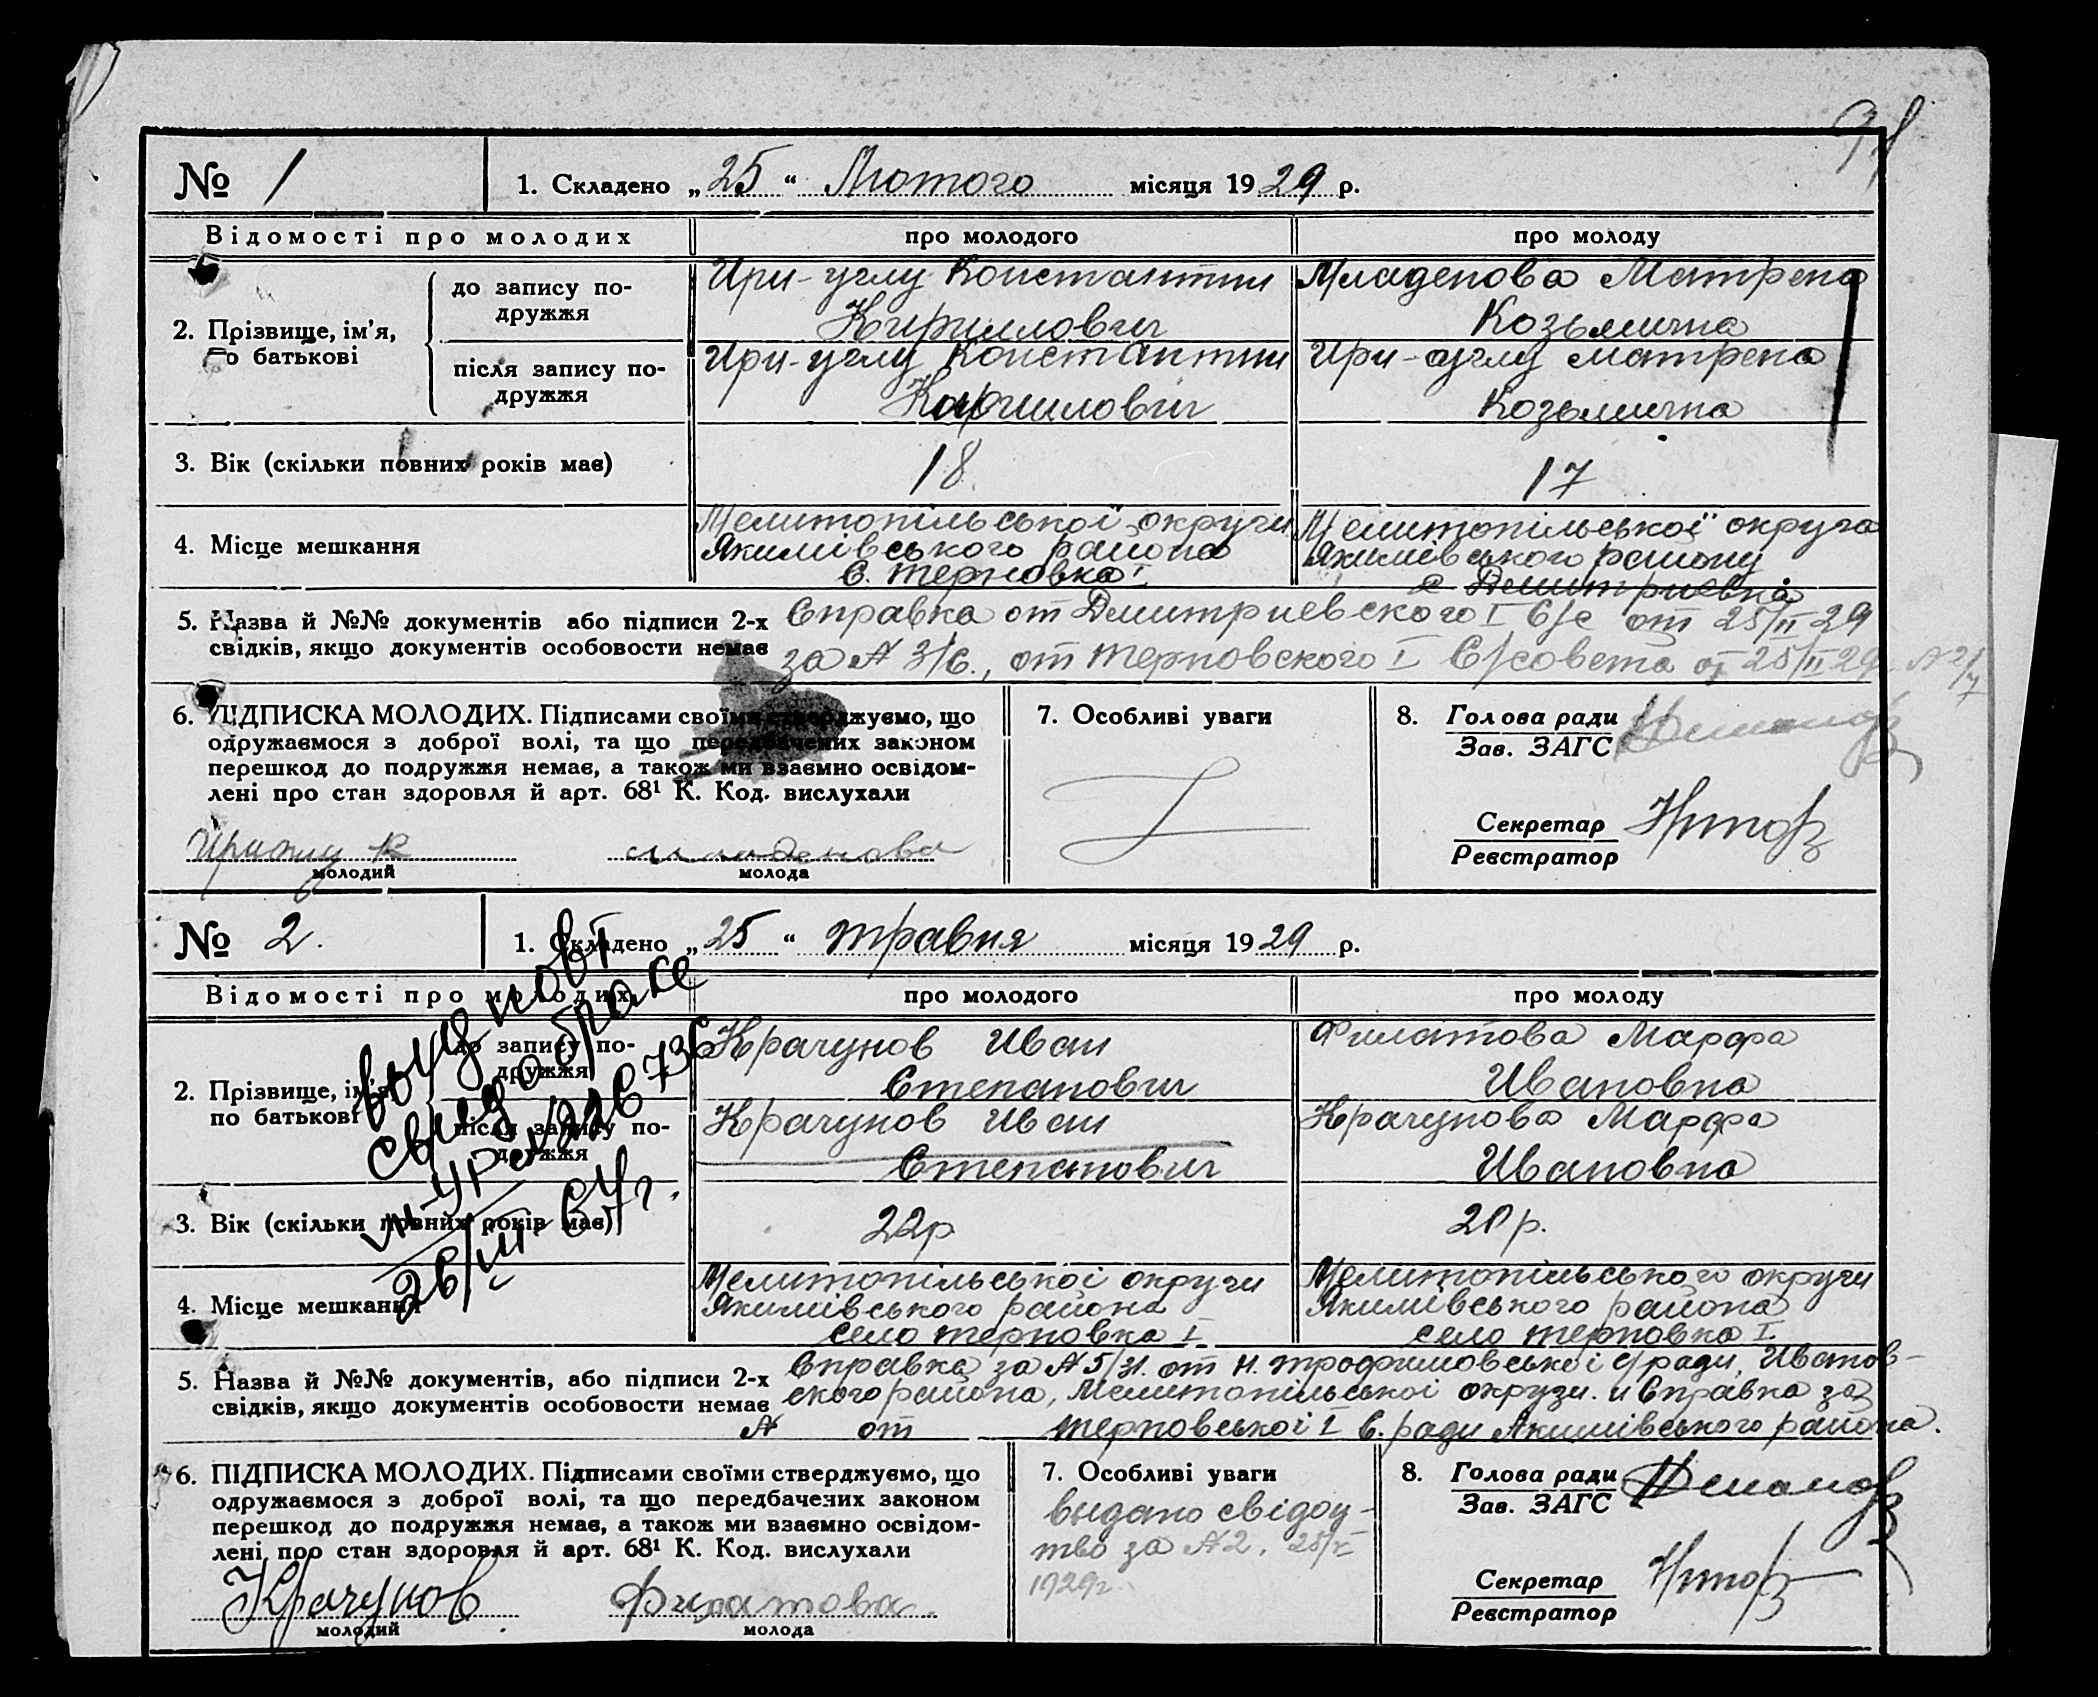 № 1
1. Складено „25“ Лютого місяця 1929 р.
Відомості про молодих
про молодого
про молоду
2. Прізвище, ім'я, по батькові
до запису подружжя
Ири-углу Константин
Кирилович
Младенова Матрена
Козьмична
після запису подружжя
Ири-углу Константин
Кирилович
Ири-углу Матрена
Козьмична
3. Вік (скільки повних років має)
18
17
4. Місце мешкання
Мелитопільської округи
Якимівського района
С. Терновка I
Мелитопільської округа
Якимівського району
с Дмитриевка
5. Назва й №№ документів або підписи 2-х
свідків, якщо документів особовости немає
Справка от Дмитриевского I С/с от 25/II 29
за № 3/6., от Терновского I С/совета от 25/II 29. № 2/7
6. ПІДПИСКА МОЛОДИХ. Підписами своїми стверджуємо, що
одружаємося з доброї волі, та що передбачених законом
перешкод до подружжя немає, а також ми взаємно освідом-
лені про стан здоровля й арт. 68¹ К. Код. вислухали
молодий
Младенова
молода
7. Особливі уваги
8. Голова ради
Зав. ЗАГС
Секретар
Реєстратор
№ 2.
1. Складено „25“ травня місяця 1929 р.
Відомості про молодих
про молодого
про молоду
2. Прізвище, ім'я, по батькові
до запису подружжя
Крачунов Иван
Степанович
Филатова Марфа
Ивановна
після запису подружжя
Крачунов Иван
Степанович
Крачунова Марфа
Ивановна
3. Вік (скільки повних років має)
22р
20р.
4. Місце мешкання
Мелитопільської округи
Якимівського района
село терновка I
Мелитопільського округи
Якимівського района
село терновка I
выд повт
свид о браке
26/III 64г.
5. Назва й №№ документів, або підписи 2-х
свідків, якщо документів особовости немає
Справка за № 5/31. от Н. трофимовської с/ради, Иванов-
ского района, Мелитопільської округи. и Справка за
№ от терновської I С. ради Якимівського района.
6. ПІДПИСКА МОЛОДИХ. Підписами своїми стверджуємо, що
одружаємося з доброї волі, та що передбачених законом
перешкод до подружжя немає, а також ми взаємно освідом-
лені про стан здоровля й арт. 68¹ К. Код. вислухали
Крачунов
молодий
Филатова
молода
7. Особливі уваги
видано свідоц-
тво за № 2. 25/V
1929г.
8. Голова ради
Зав. ЗАГС
Секретар
Реєстратор